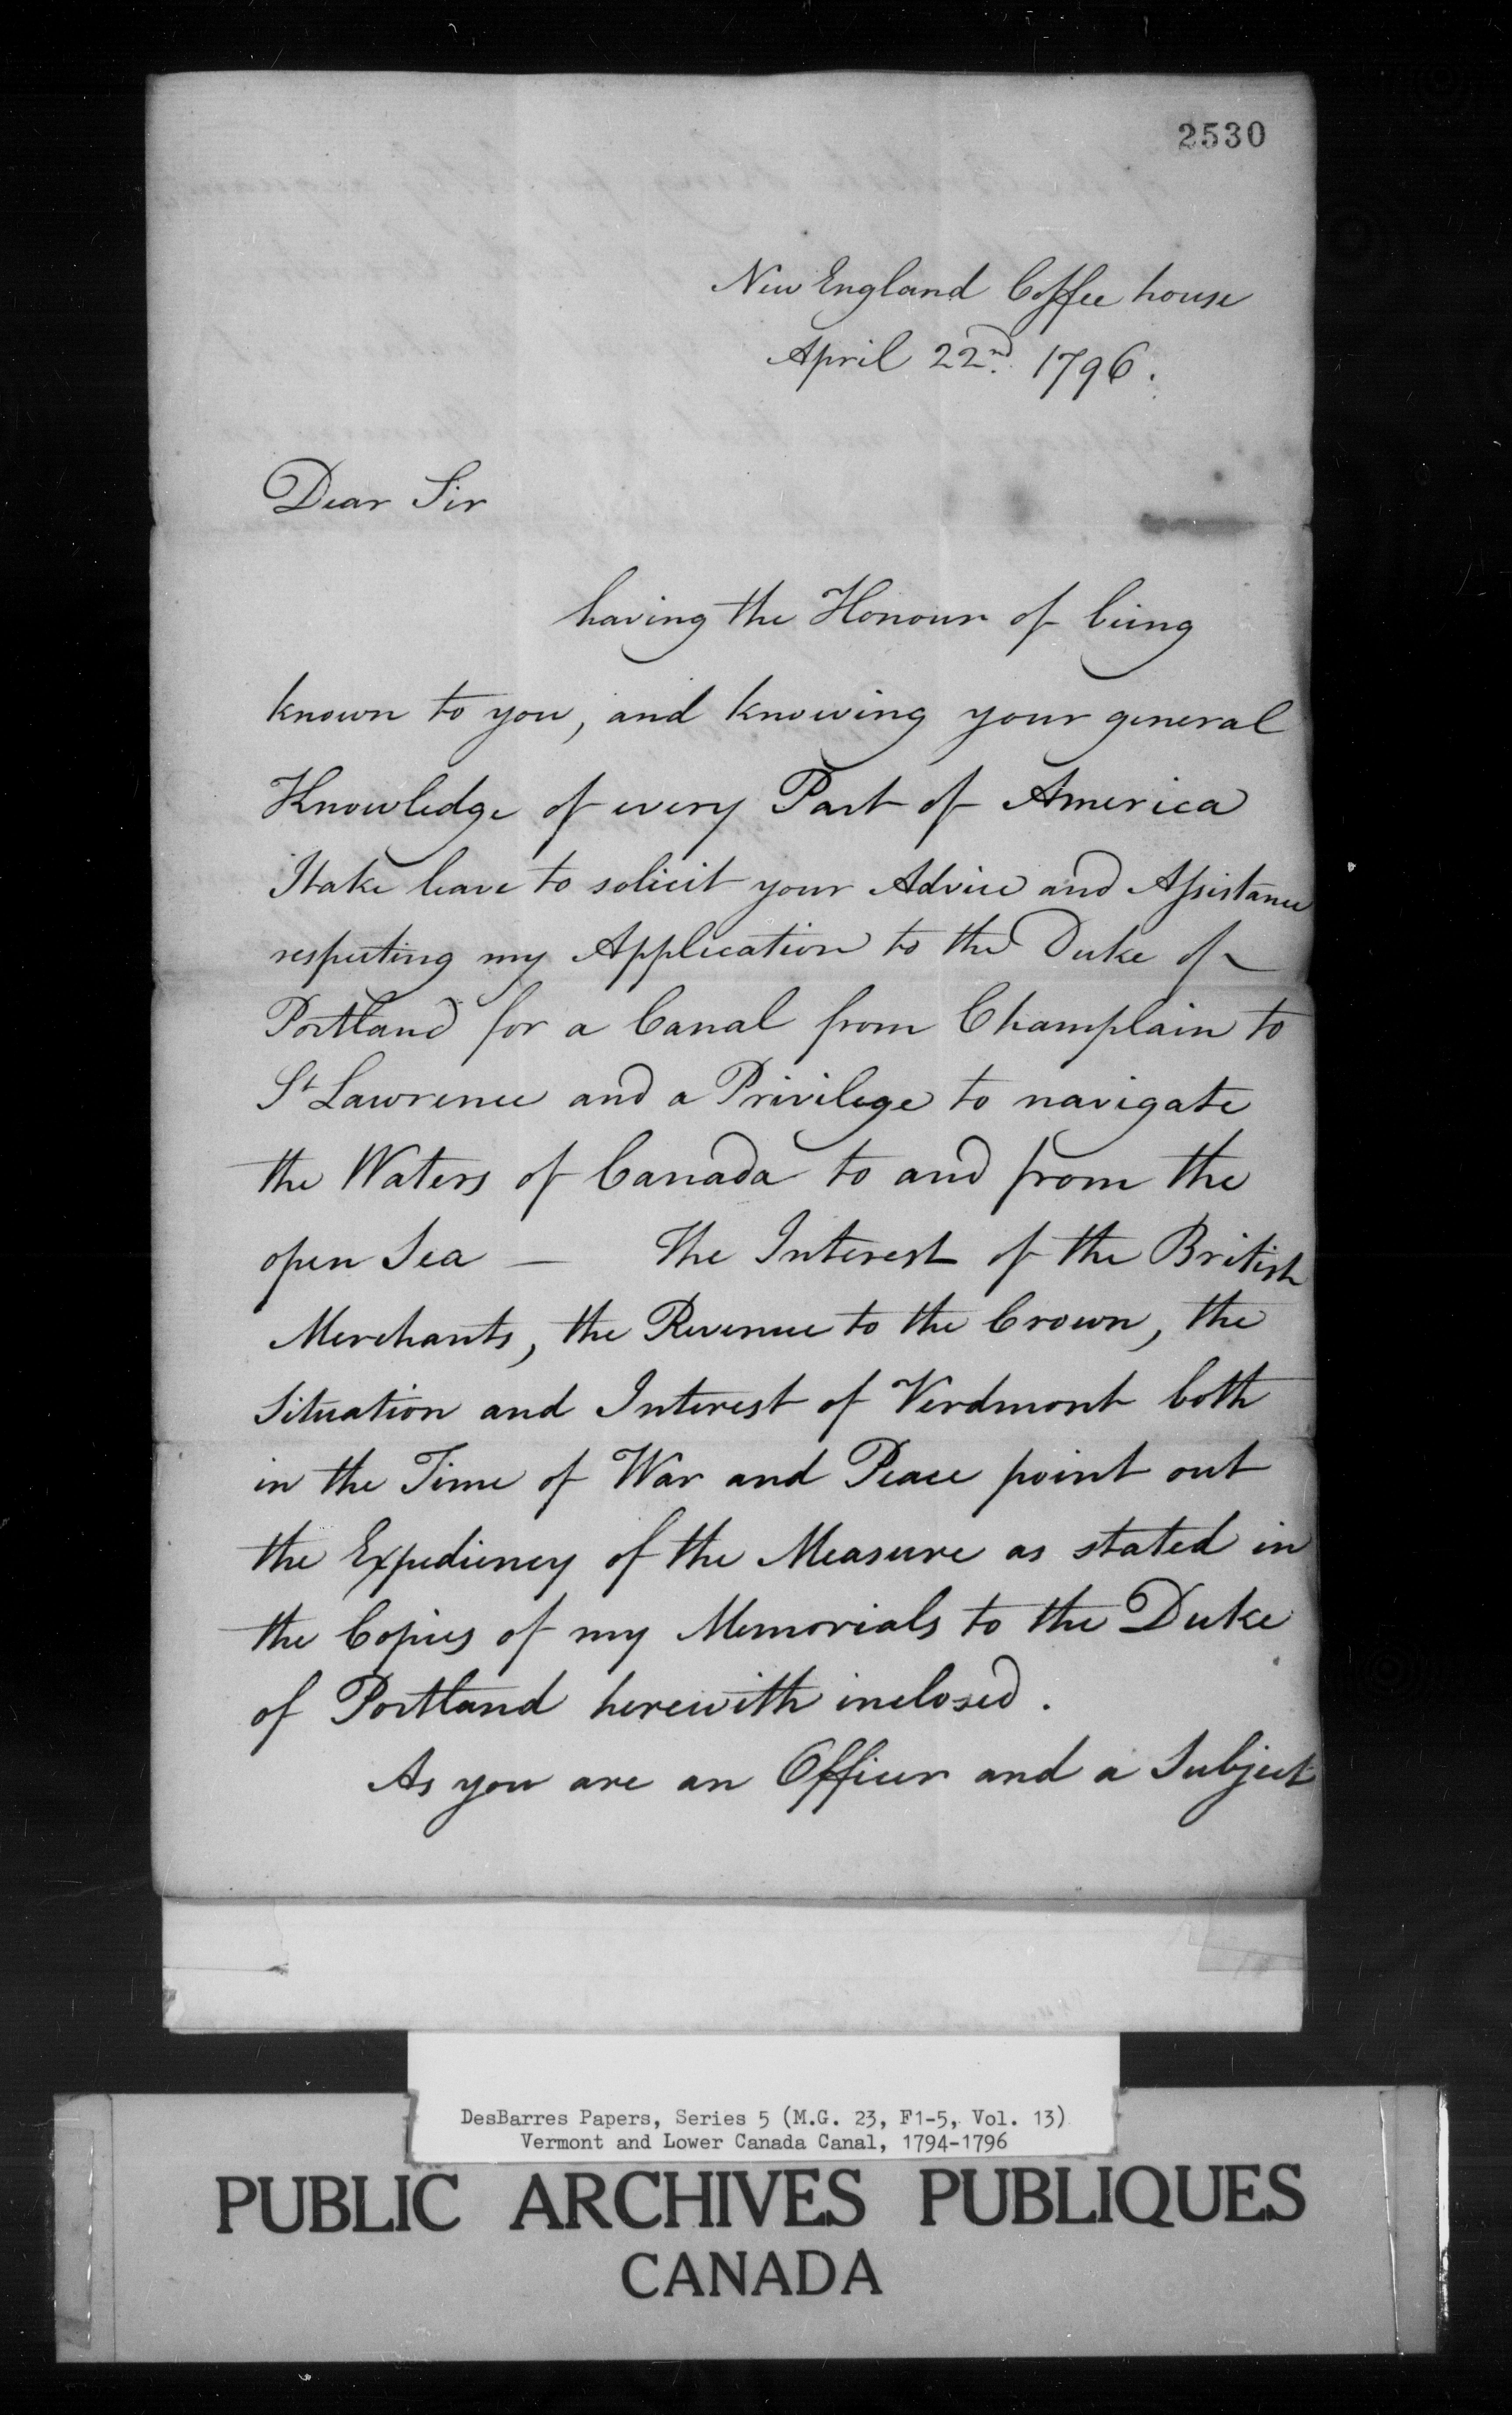 2530
New England Coffee house
April 22nd. 1796.
Dear Sir
having the Honour of being
known to you, and knowing your general
Knowledge of every Part of America
I take leave to solicit your Advice and Assistance
respecting my Application to the Duke of
Portland for a Canal from Champlain to
St Lawrence and a Privilege to navigate
the Waters of Canada to and from the
open Sea — The Interest of the British
Merchants, the Revenue to the Crown, the
Situation and Interest of Verdmont both
in the Time of War and Peace point out
the Expediency of the Measure as stated in
the Copies of my Memorials to the Duke
of Portland herewith inclosed.
As you are an Officer and a Subject
DesBarres Papers, Series 5 (M.G. 23, F1-5, Vol. 13)
Vermont and Lower Canada Canal, 1794-1796
PUBLIC ARCHIVES PUBLIQUES
CANADA